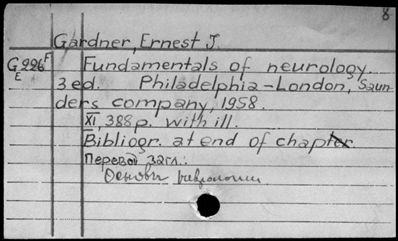 8
Gardner, Ernest J.
G226F
E
Fundamentals of neurology.
3 ed. Philadelphia-London, Saun-
ders company, 1958.
XI, 388 p. with ill.
Bibliogr. at end of chapter.
Перевод загл.:
Основы неврологии